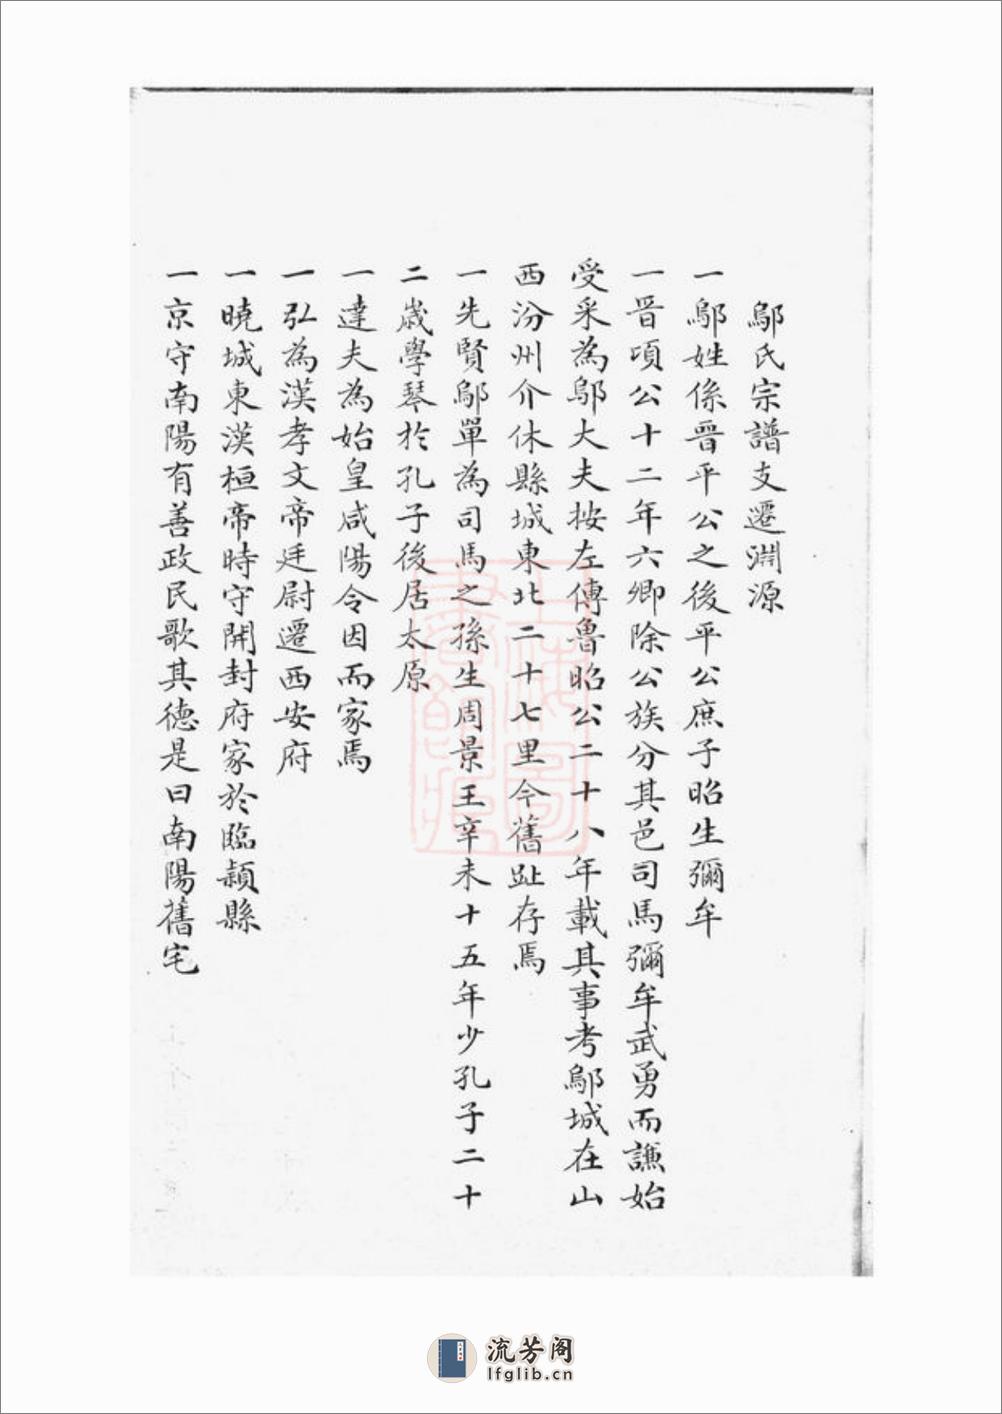 鄔氏宗譜支遷淵源
一鄔姓係晉平公之後平公庶子昭生彌牟
一晉項公十二年六卿除公族分其邑司馬彌牟武勇而謙始
受采為鄔大夫按左傳魯昭公二十八年載其事考鄔城在山
西汾州介休縣城東北二十七里今舊趾存焉
一先賢鄔單為司馬之孫生周景王辛未十五年少孔子二十
二歲學琴於孔子後居太原
一達夫為始皇咸陽令因而家焉
一弘為漢孝文帝廷尉遷西安府
一曉城東漢桓帝時守開封府家於臨頴縣
一京守南陽有善政民歌其德是曰南陽舊宅
上海圖
書館藏
流芳阁
lfglib.cn